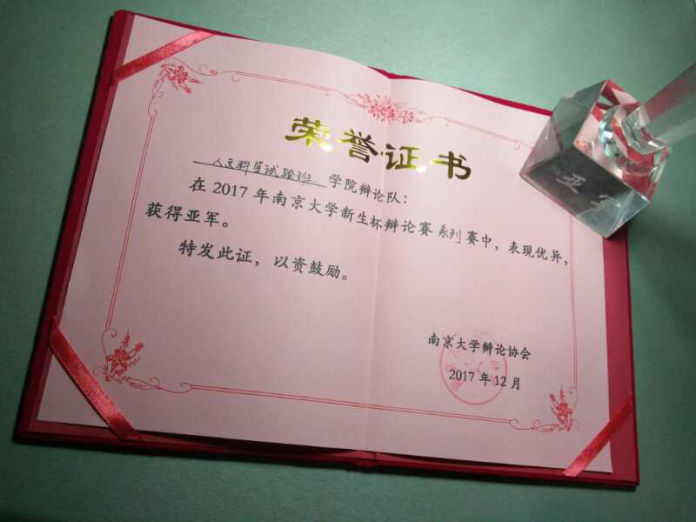 荣誉证书
人文科学试验班 学院辩论队:
在 2017 年南京大学新生杯辩论赛系列赛中，表现优异，
获得亚军。
特发此证，以资鼓励。
南京大学辩论协会
2017 年 12 月
亚军